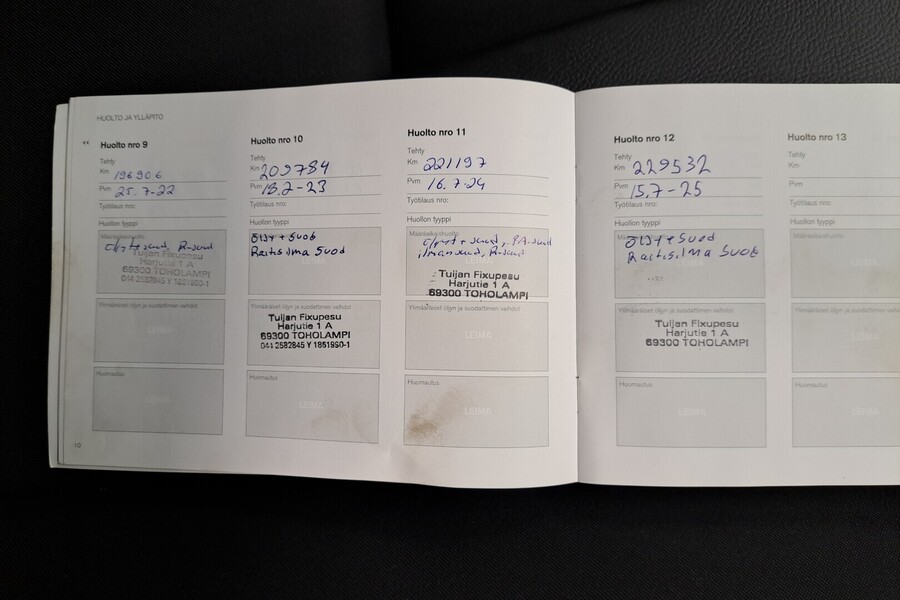 HUOLTO JA YLLÄPITO
Huolto nro 9
Tehty
Km 196906
Pvm 25.7-22
Työtilaus nro:
Huollon tyyppi
Määräaikaishuolto
Tuijan Fixupesu
Harjutie 1 A
69300 TOHOLAMPI
044 2582845 Y 1861990-1
Ylimääräiset öljyn ja suodattimen vaihdot
LEIMA
Huomautus
LEIMA
10
Huolto nro 10
Tehty
Km 209784
Pvm 18.7-23
Työtilaus nro:
Huollon tyyppi
Öljy + Suod
Raitisilma Suod
Tuijan Fixupesu
Harjutie 1 A
69300 TOHOLAMPI
044 2582845 Y 1861990-1
Huomautus
LEIMA
Huolto nro 11
Tehty
Km 221197
Pvm 16.7-24
Työtilaus nro:
Huollon tyyppi
Määräaikaishuolto
Tuijan Fixupesu
Harjutie 1 A
69300 TOHOLAMPI
Ylimääräiset öljyn ja suodattimen vaihdot
LEIMA
Huomautus
LEIMA
Huolto nro 12
Tehty
Km 229532
Pvm 15.7-25
Työtilaus nro:
Huollon tyyppi
Öljy + Suod
Raitisilma Suod
Ylimääräiset öljyn ja suodattimen vaihdot
Tuijan Fixupesu
Harjutie 1 A
69300 TOHOLAMPI
Huomautus
LEIMA
Huolto nro 13
Tehty
Km
Pvm
Työtilaus nro:
Huollon tyyppi
Määräaikaishuolto
LEIMA
Ylimääräiset öljyn ja suodattimen
LEIMA
Huomautus
LEIMA